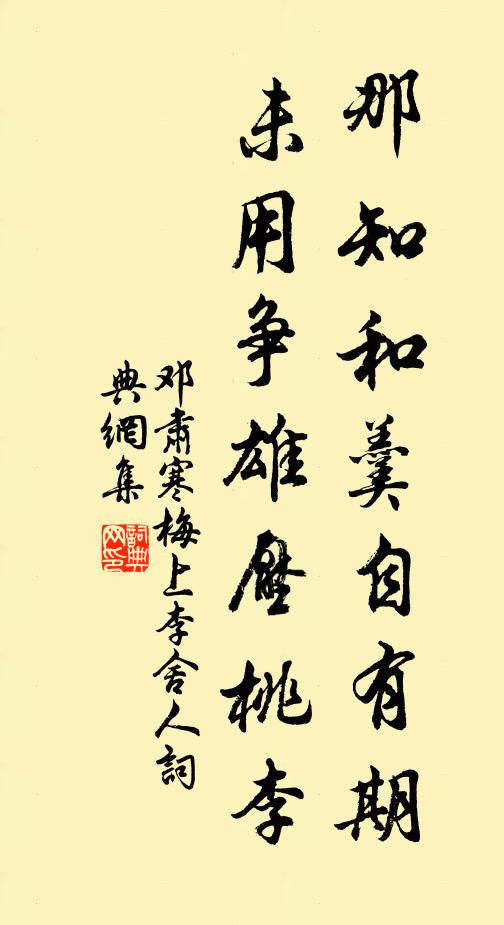 那知和羹自有期
未用争雄壓桃李
邓肅寒梅上李舍人詞
典網集
詞典网印